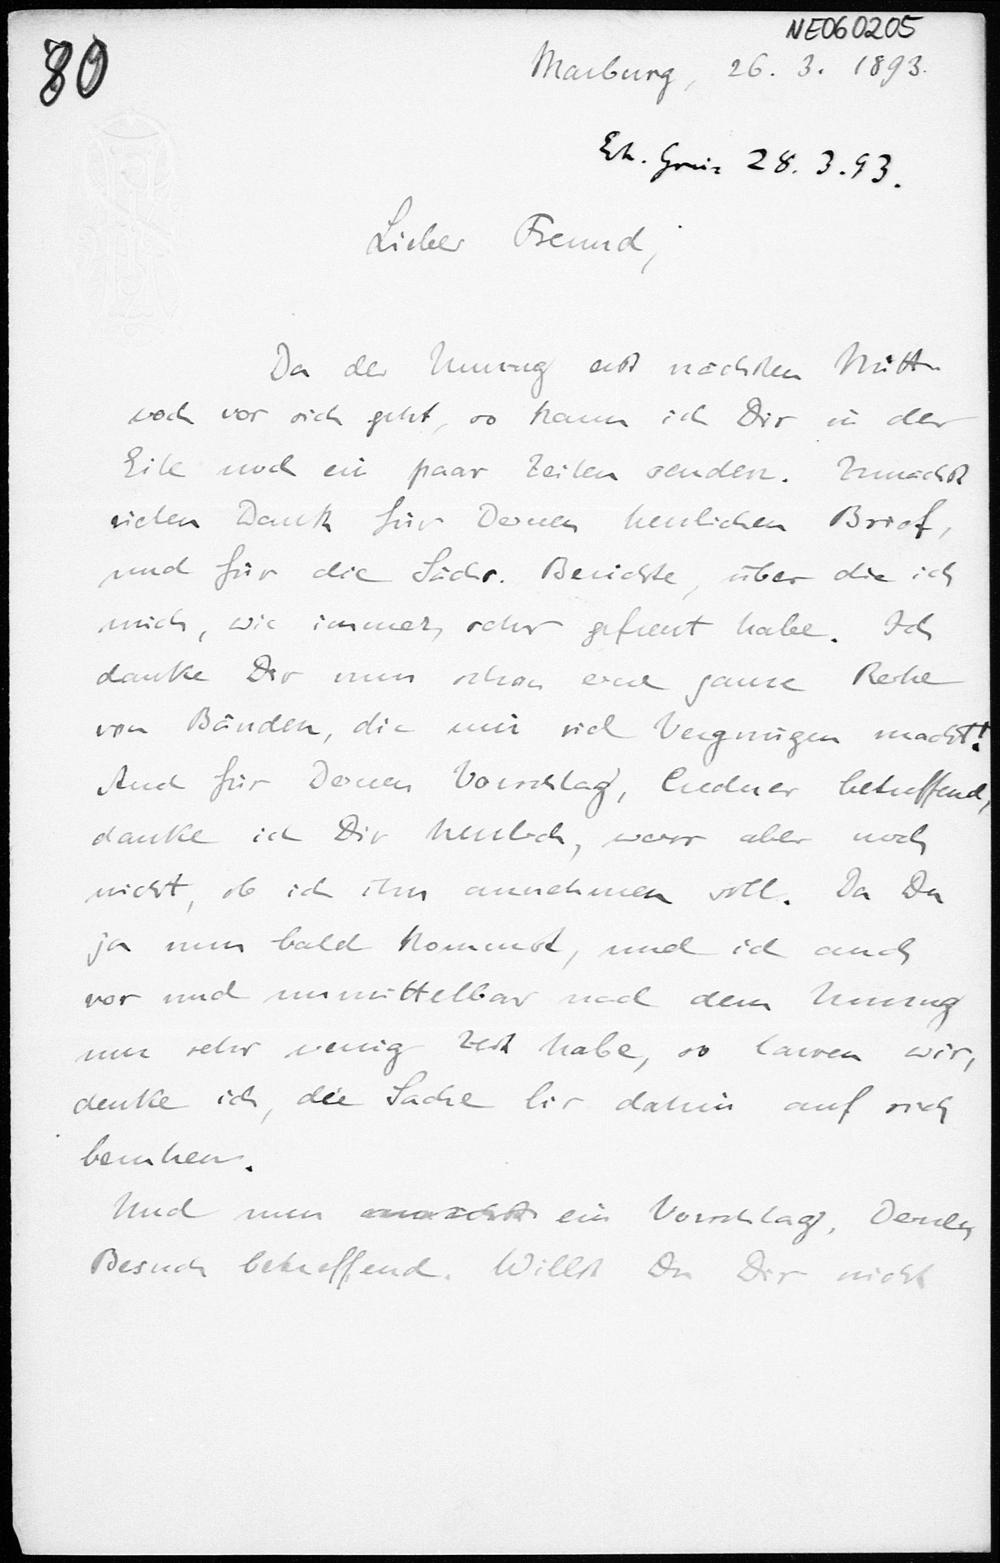 NE060205
80
Marburg, 26. 3. 1893.
Eh. Greiz 28. 3. 93.
Lieber Freund,
Da der Umzug erst nächsten Mitt-
woch vor sich geht, so kann ich Dir in der
Eile noch ein paar Zeilen senden. Zunächst
vielen Dank für Deinen herzlichen Brief,
und für die Sächs. Berichte, über die ich
mich, wie immer, sehr gefreut habe. Ich
danke Dir nun schon eine ganze Reihe
von Bänden, die mir viel Vergnügen macht!
Auch für Deinen Vorschlag, Credner betreffend,
danke ich Dir herzlich, weiss aber noch
nicht, ob ich ihn annehmen soll. Da Du
ja nun bald kommst, und ich auch
vor und unmittelbar nach dem Umzug
nur sehr wenig Zeit habe, so lassen wir,
denke ich, die Sache bis dahin auf sich
beruhen.
Und nun ein Vorschlag, Deinen
Besuch betreffend. Willst Du Dir nicht